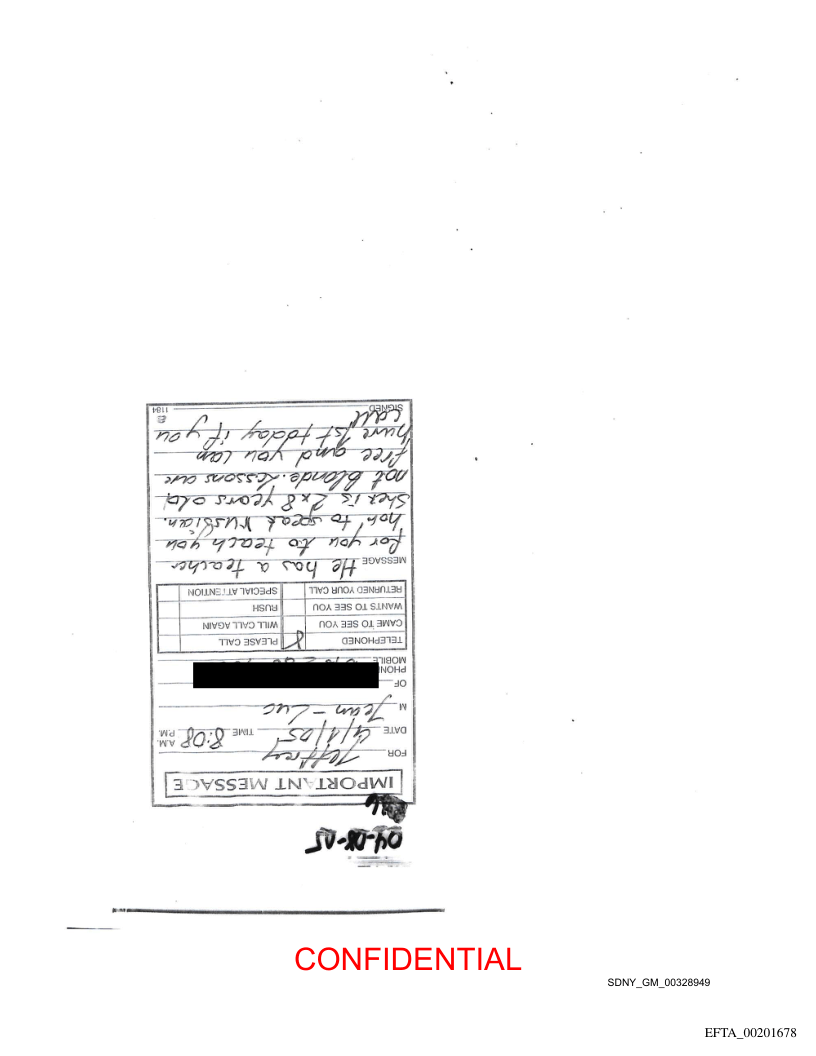 04-08-05
IMPORTANT MESSAGE
FOR Jeffrey
DATE 4/1/05 TIME 8:08 A.M. P.M.
M Jean-Luc
OF
PHONE
MOBILE
TELEPHONED PLEASE CALL
CAME TO SEE YOU WILL CALL AGAIN
WANTS TO SEE YOU RUSH
RETURNED YOUR CALL SPECIAL ATTENTION
MESSAGE He has a teacher
for you to teach you
how to speak russian.
She is 2x8 years old
not blonde. Lessons are
free and you can
have 1st today if you
call
SIGNED 1184
CONFIDENTIAL
SDNY_GM_00328949
EFTA_00201678